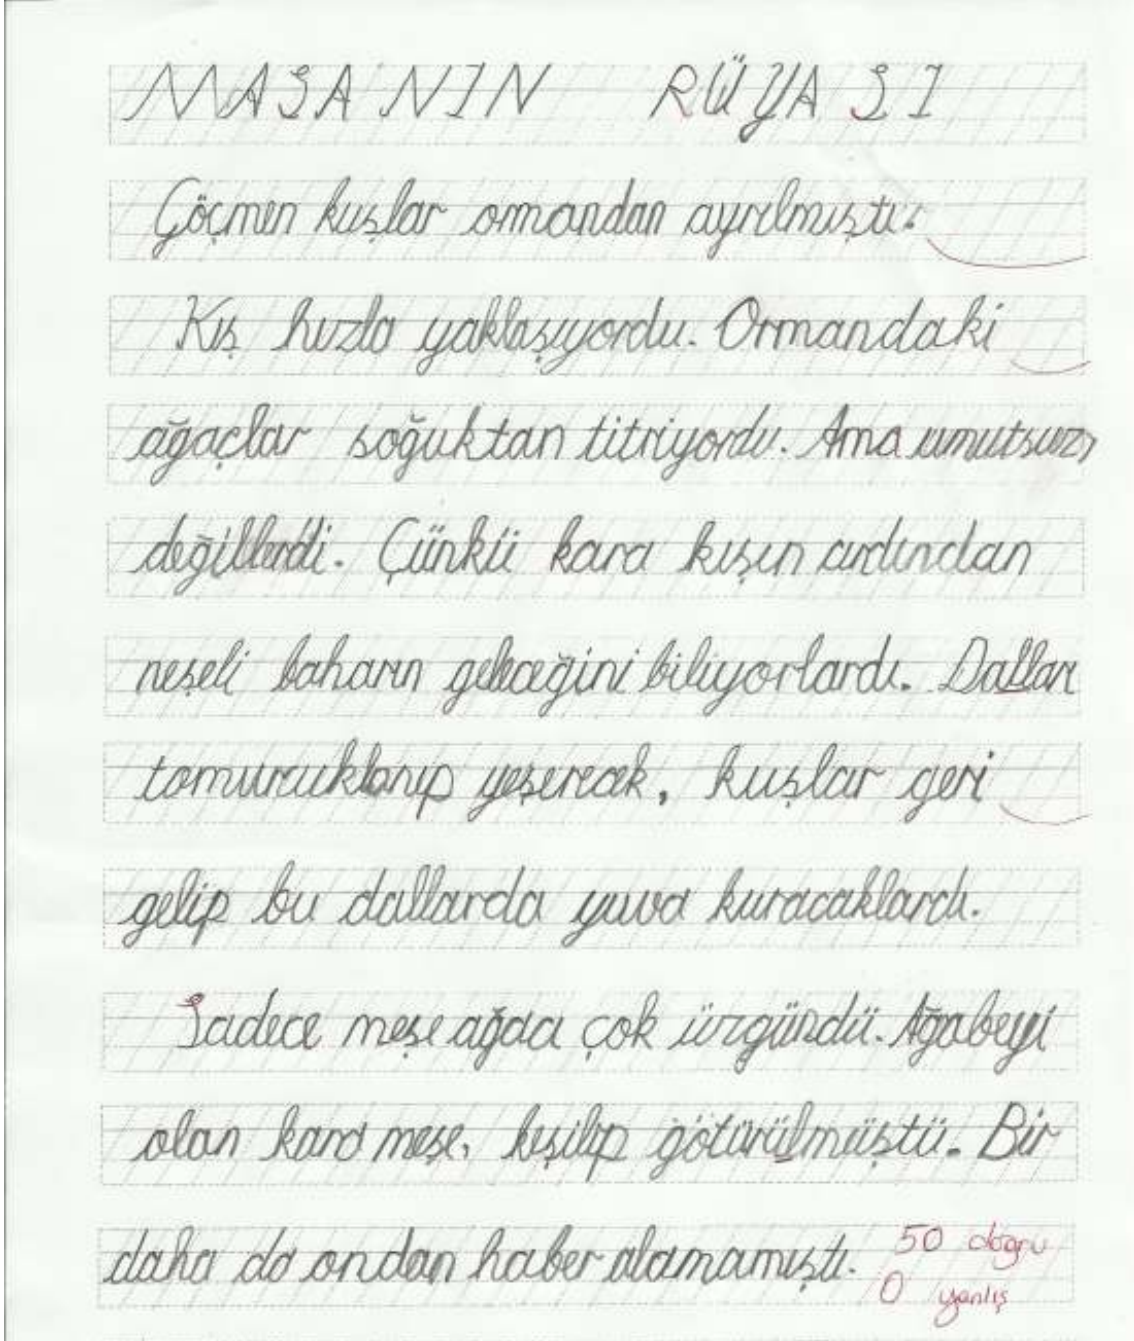 MASANIN RÜYASI
Göçmen kuşlar ormandan ayrılmıştı.
Kış hızla yaklaşıyordu. Ormandaki
ağaçlar soğuktan titriyordu. Ama umutsuz
değillerdi. Çünkü kara kışın ardından
neşeli baharın geleceğini biliyorlardı. Dalları
tomurcuklanıp yeşerecek, kuşlar geri
gelip bu dallarda yuva kuracaklardı.
Sadece meşe ağacı çok üzgündü. Ağabeyi
olan kara meşe, keşilip götürülmüştü. Bir
daha da ondan haber alamamıştı.
50 doğru
0 yanlış